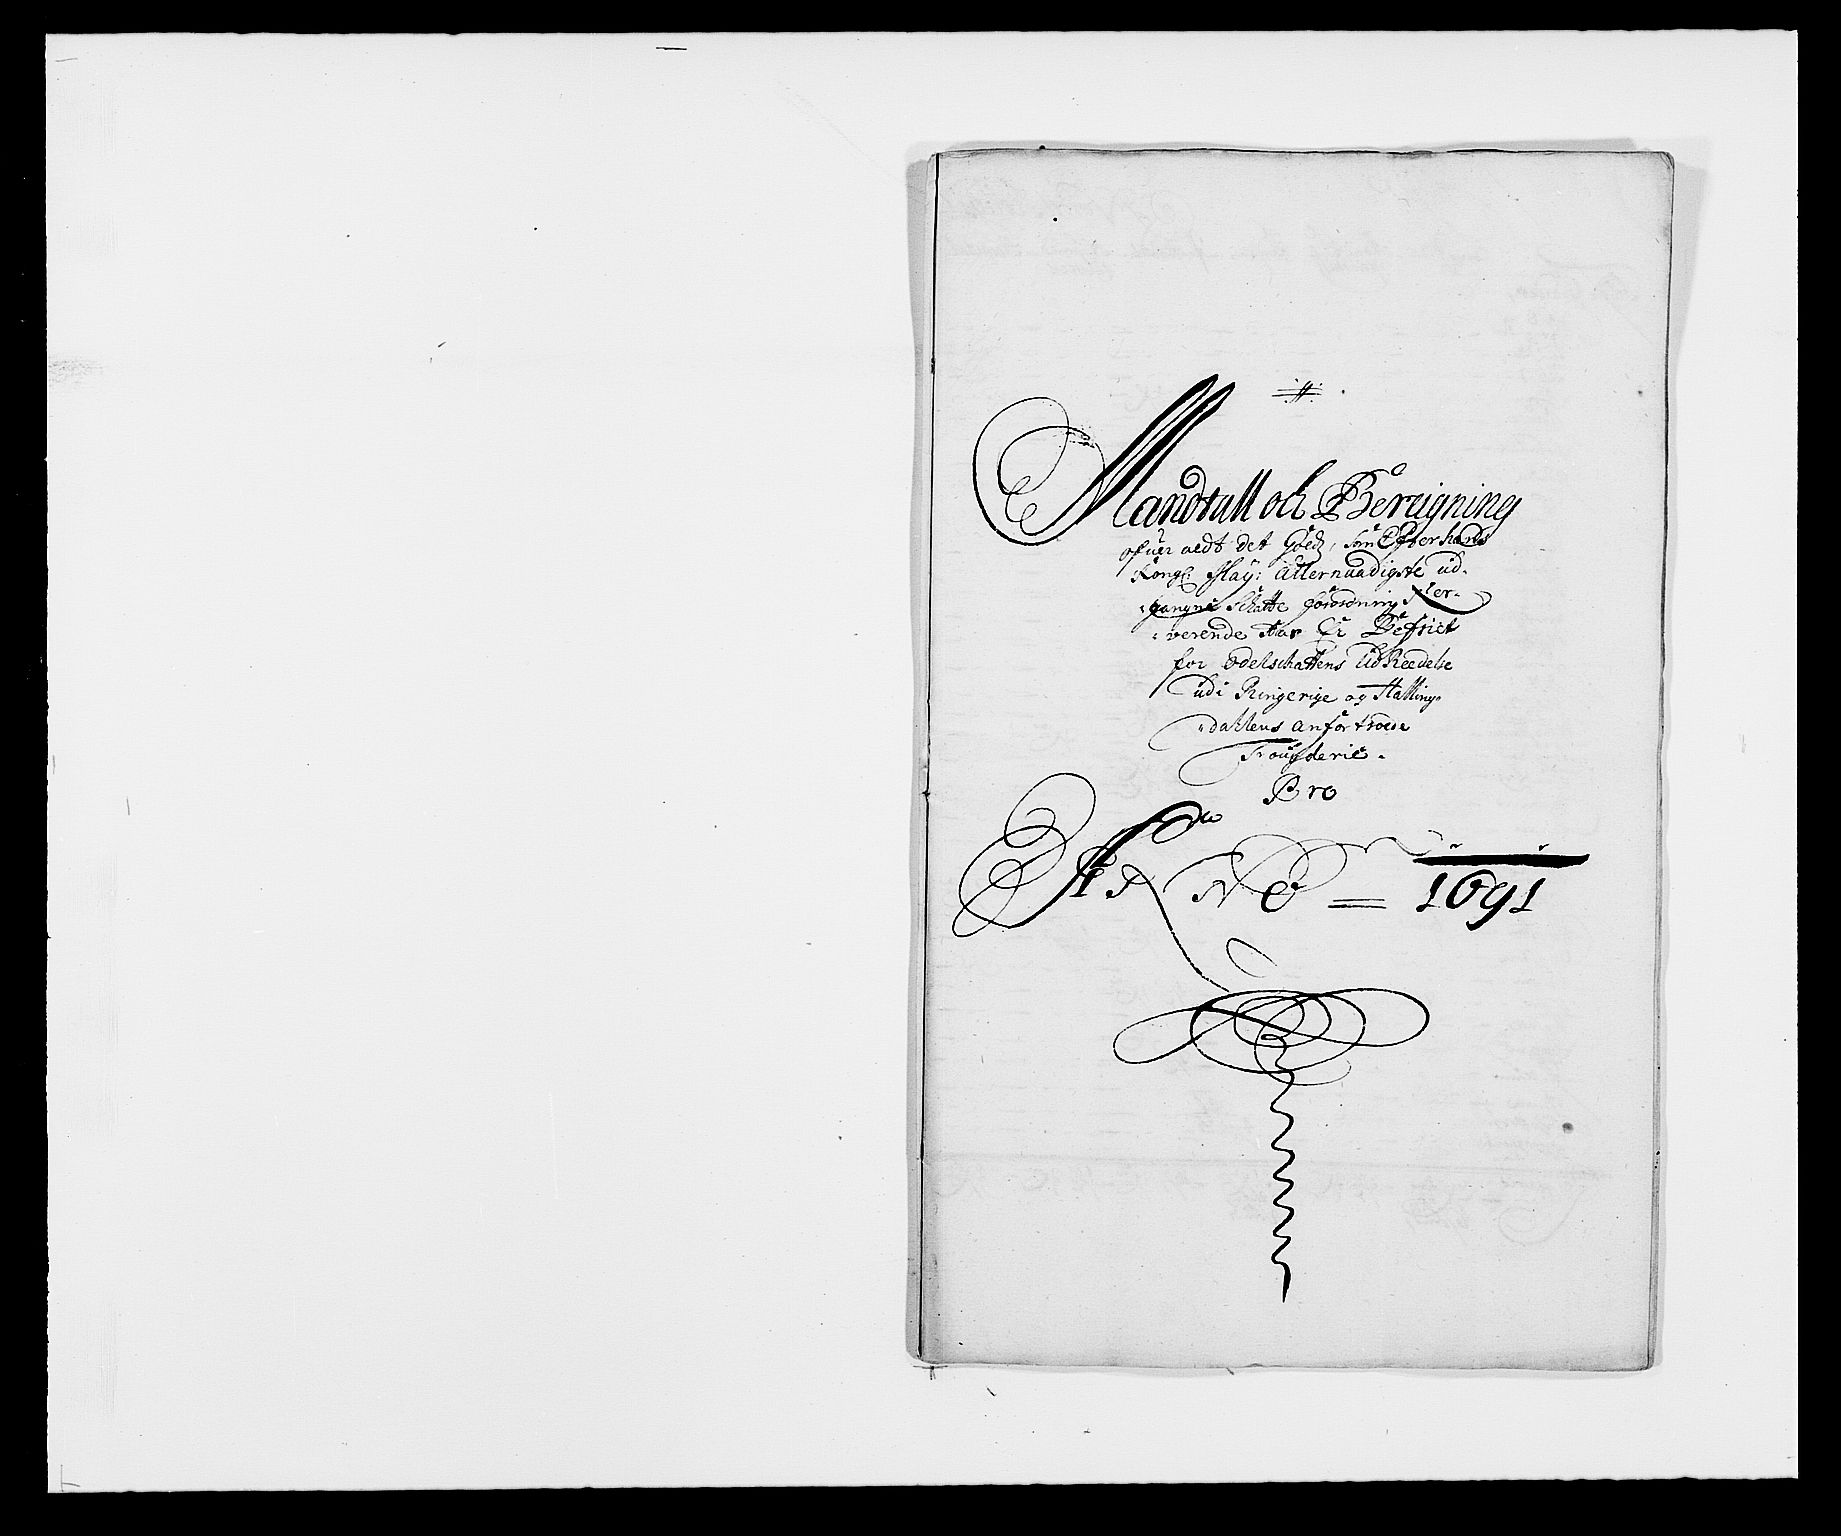 Mandtall och Bereigning
ofuer aldt det Goedz, som Efter hands
Kongl: May: Allernaadigste ud-
gangne Schatte forordning Nær-
værende Aar Er Befriet
for Odelschattens UdReedelse
udi Ringerige og Halling-
dahlens anfortroede
Fougderie.
Pro
ANNO = 1691